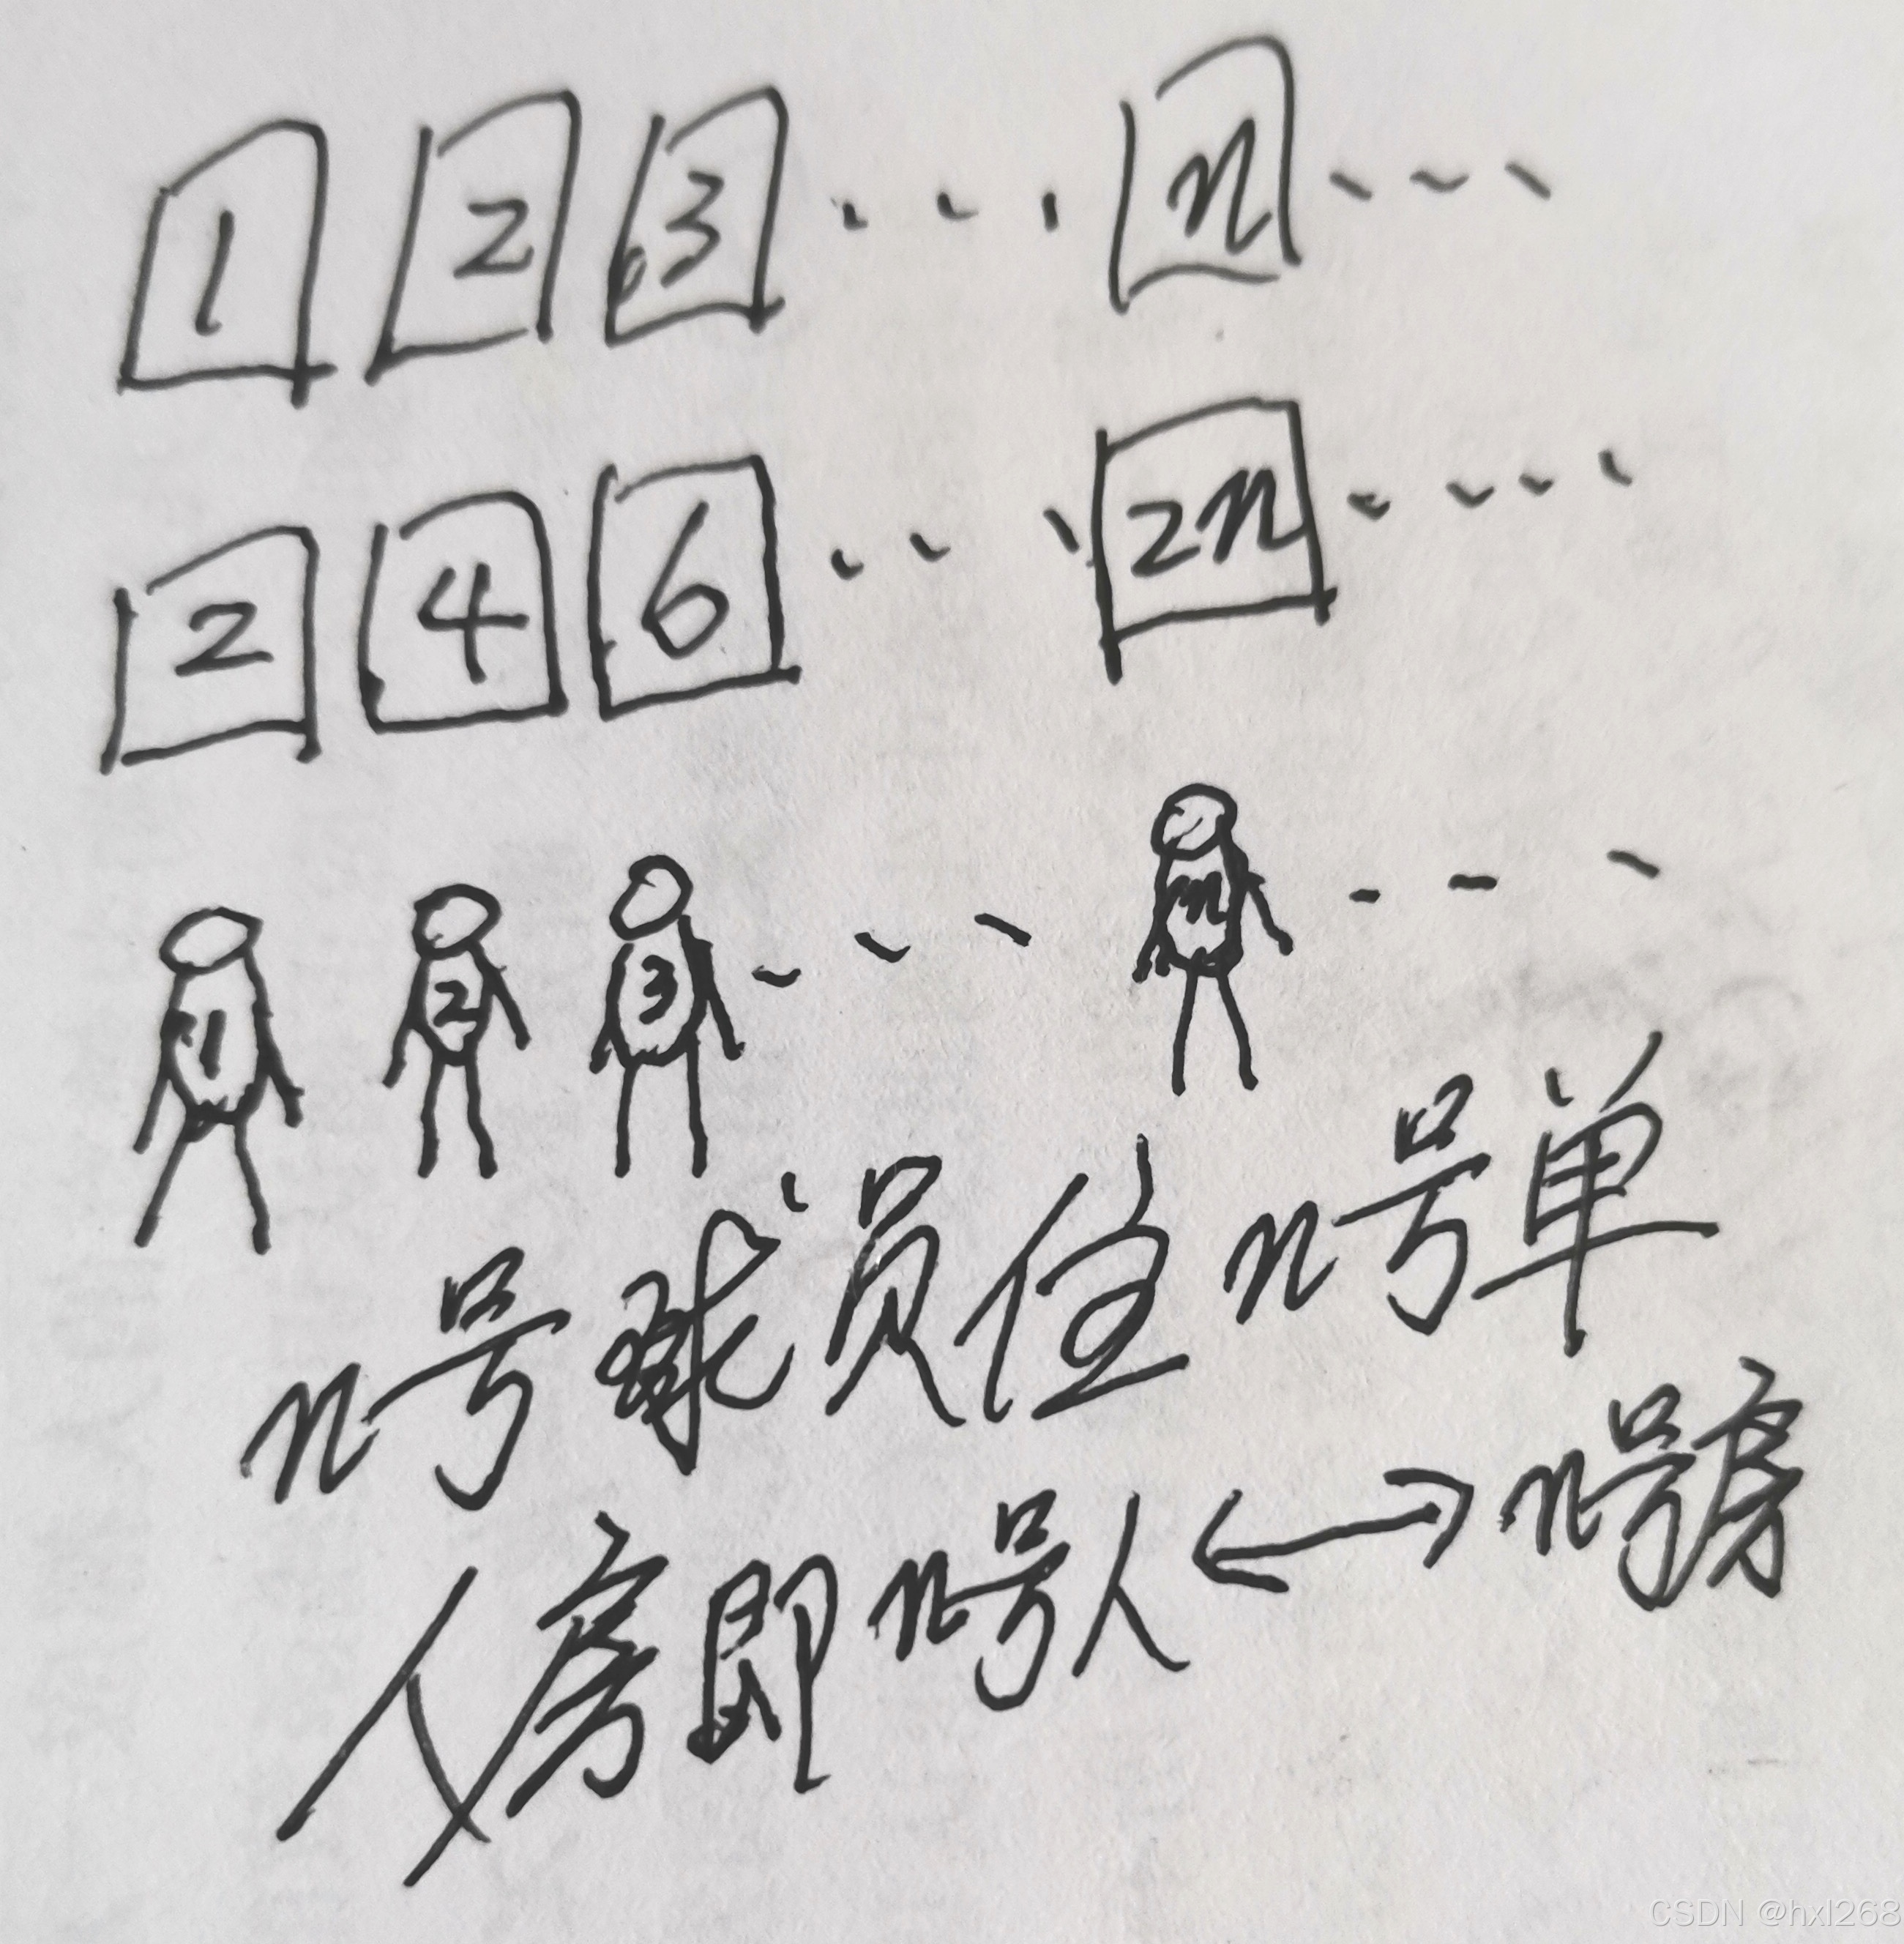 1 2 3 ... n ...
2 4 6 ... 2n ....
1 2 3 ... n ...
n号球员住n号单
人房即n号人←→n号房
CSDN @hxl268